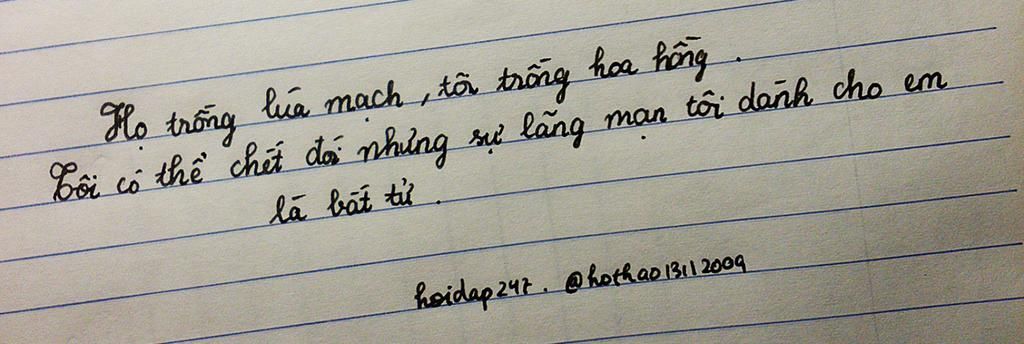 Họ trồng lúa mạch, tôi trồng hoa hồng.
Tôi có thể chết đói nhưng sự lãng mạn tôi dành cho em
là bất tử.
hoidap247. @hothao13112009